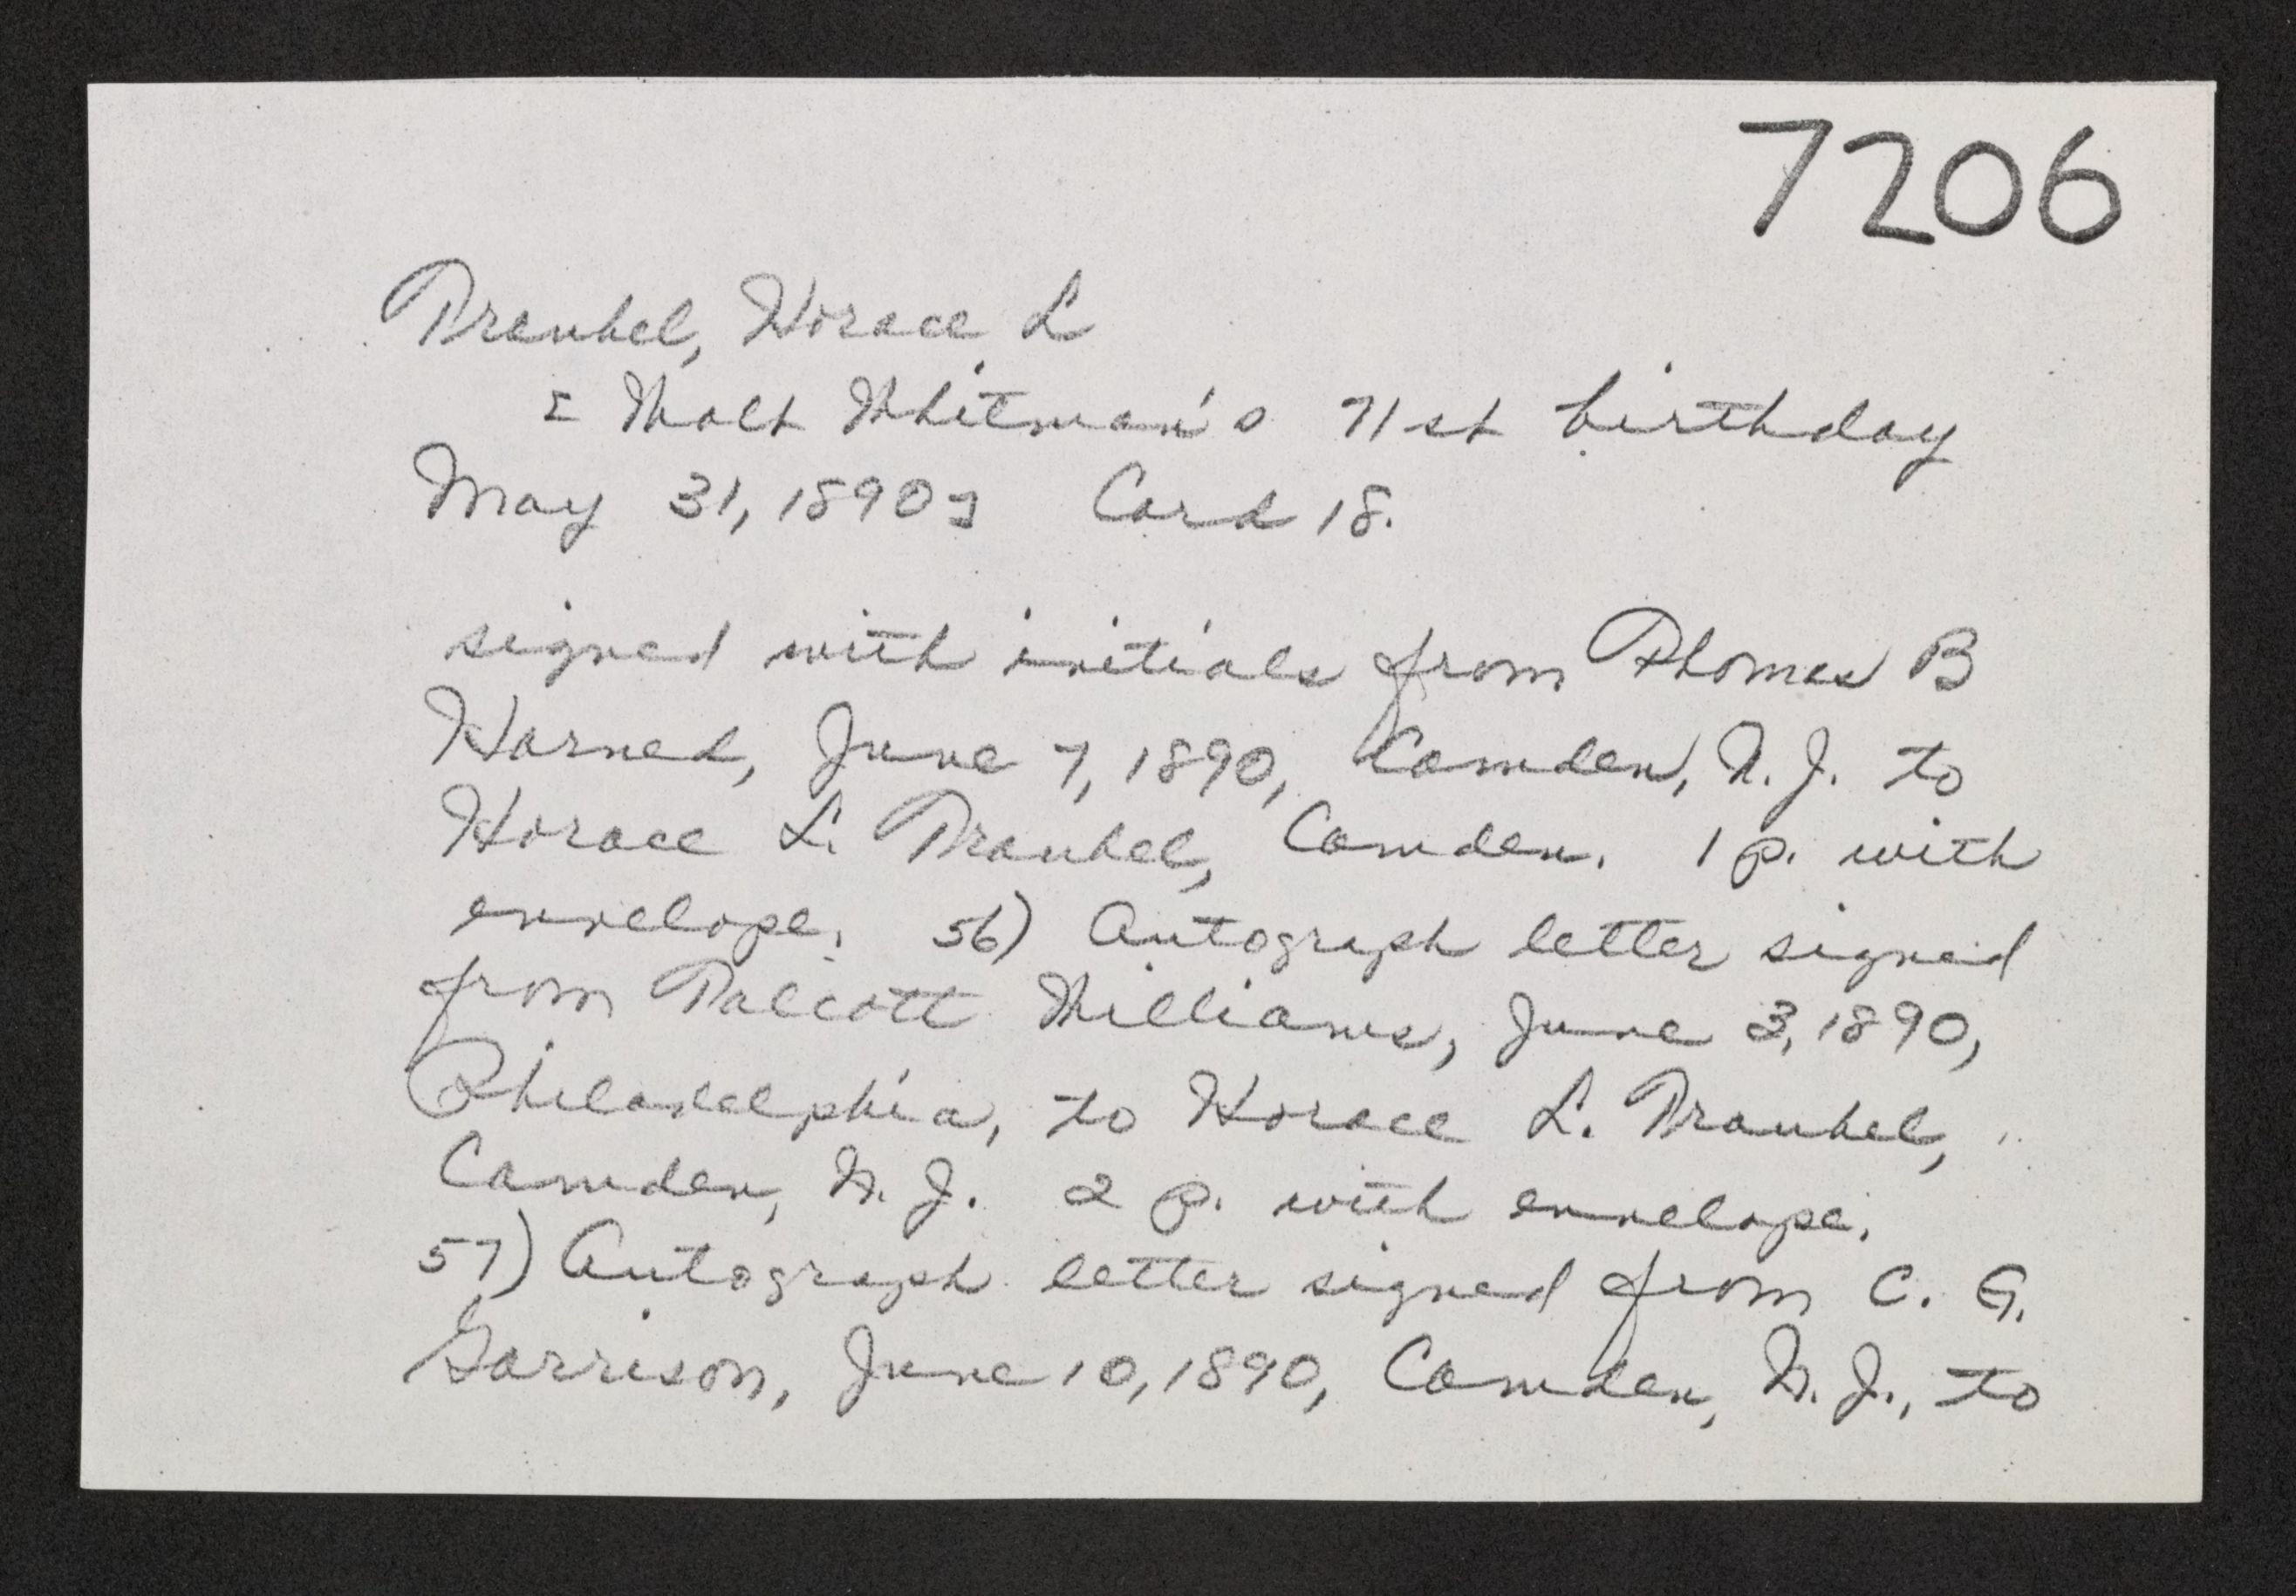 7206
Traubel, Horace L
[Walt Whitman's 71st birthday
May 31, 1890] Card 18.
signed with initials from Thomas B
Harned, June 7, 1890, Camden, N. J. to
Horace L. Traubel, Camden. 1 p. with
envelope. 56) Autograph letter signed
from Talcott Williams, June 3, 1890,
Philadelphia, to Horace L. Traubel,
Camden, N. J. 2 p. with envelope.
57) Autograph letter signed from C. G.
Garrison, June 10, 1890, Camden, N. J., to